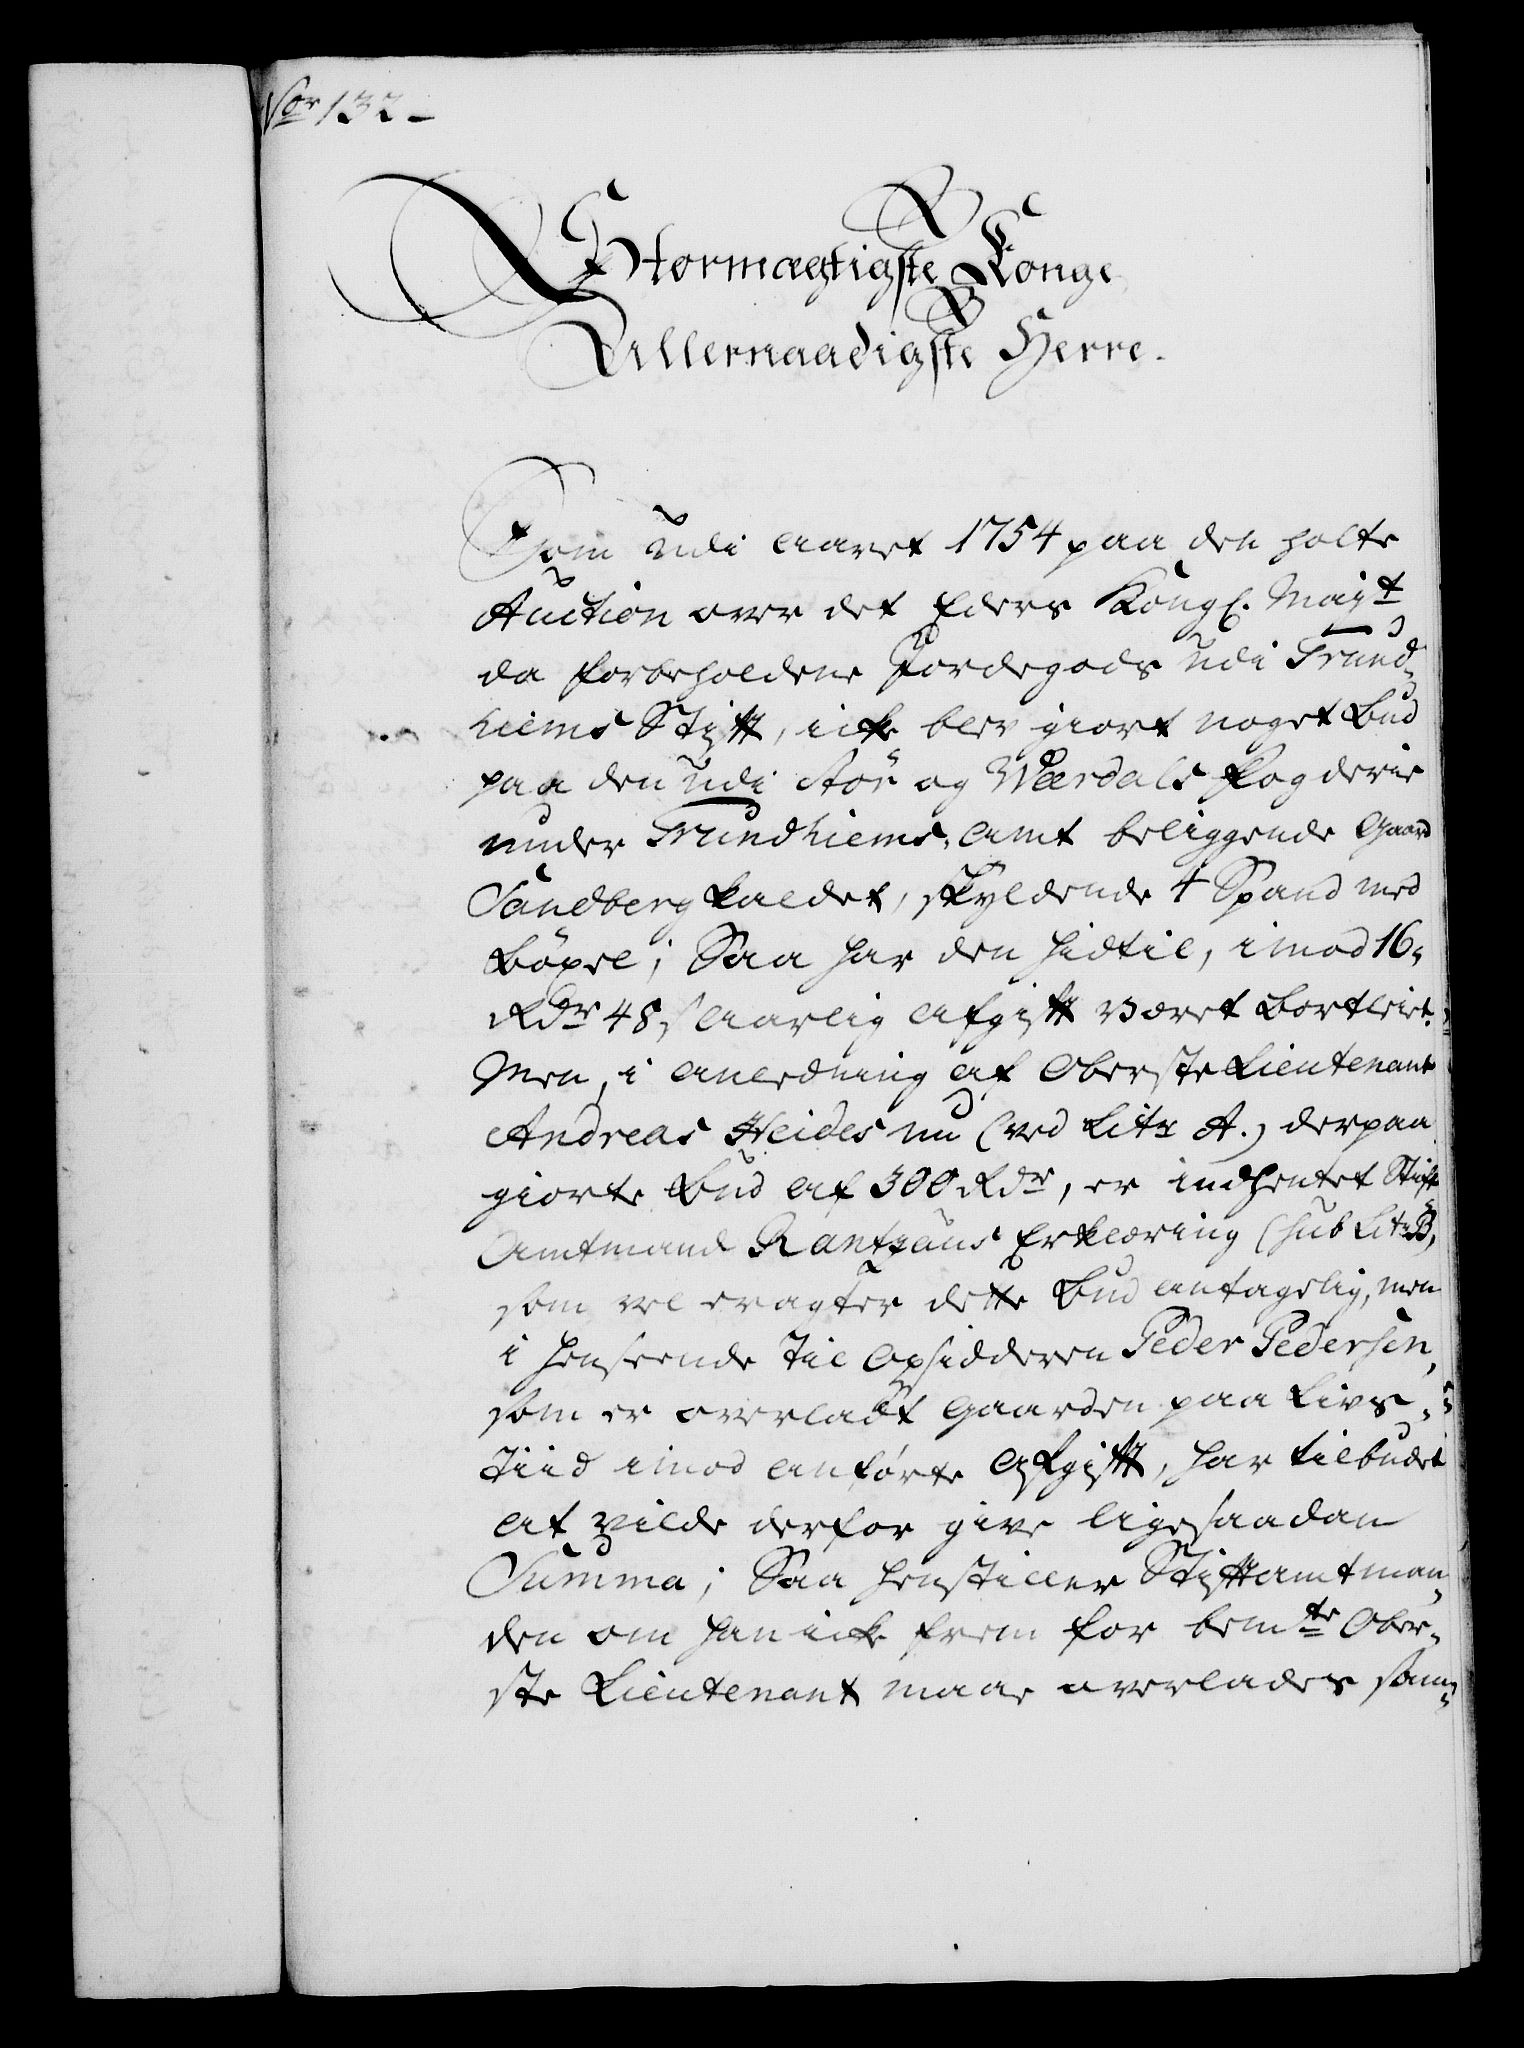 Nor 132 -
Stormægtigste Konge
Allernaadigste Herre.
Som udi Aaret 1754 paa den holte
Auction over det Eders Kongl. Mayt
da forbeholdene Jordegods udi Trund-
hiems Stift, icke blev giort noget Bud
paa den udi Stör og Wærdals Fogderie
under Trundhiems Amt beliggende Gaard
Sandberg kaldet, skyldende 4 Spand med
Böxel; Saa har den hidtil, imod 16
Rdr 48 s aarlig Afgift været bortleiet.
Men, i Anledning af Oberste Lieutenant
Andreas Heides nu (ved Litr A.) derpaa
giorte Bud af 300 Rdr, er indhentet Stift
Amtmand Rantzaus Erklæring (sub Litr B,
som vel eragter dette Bud antagelig, men
i Henseende til Opsidderen Peder Pedersen,
som er overladt Gaarden paa Livs-
Tiid imod anførte Afgift, har tilbudet
at vilde derfor give ligesaadan
Summa; Saa henstiller Stiftamtman-
den om han icke frem for bemte Ober-
ste Lieutenant maae overlades sam-